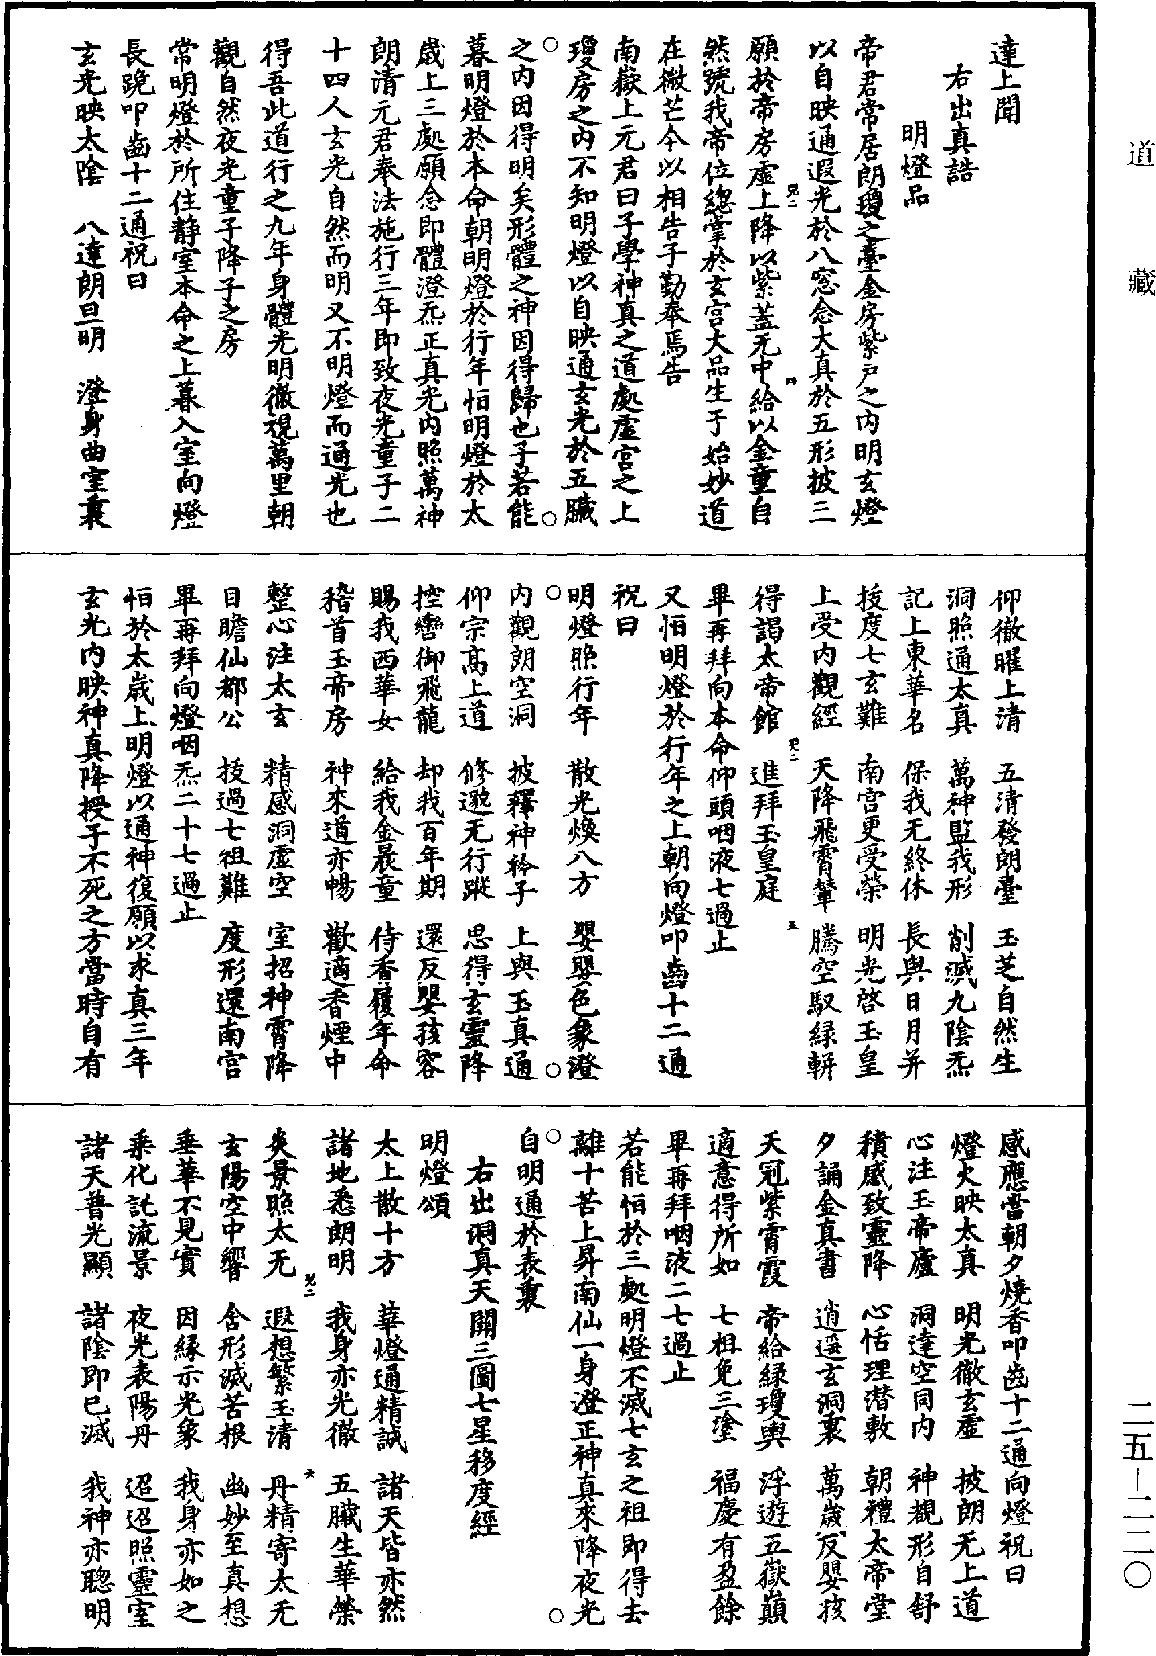 道藏
達上聞
右出真誥
明燈品
帝君常居朗瓊之臺金房紫戸之内明玄燈
以自映通遐光於八窓念大真於五形披三
願於帝房虛上降以紫蓋无中給以金童自
然號我帝位總掌於玄宫大品生于始妙道
在微芒今以相告子勤奉焉告
南嶽上元君曰子學神真之道處虛宫之上
瓊房之内不知明燈以自映通玄光於五臟
之内因得明矣形體之神因得歸也子若能
暮明燈於本命朝明燈於行年怕明燈於太
歲上三處願念即體澄炁正真光内照萬神
朗清元君奉法施行三年即致夜光童子二
十四人玄光自然而明又不明燈而通光也
得吾此道行之九年身體光明徹視萬里朝
觀自然夜光童子降子之房
常明燈於所住静室本命之上暮入室向燈
長跪叩齒十二通祝曰
玄光映太陰　八達朗旦明　澄身曲室裏
仰徹曜上清　五清發朗臺　玉芝自然生
洞照通太真　萬神監我形　削滅九陰炁
記上東華名　保我无終休　長與日月并
拔度七玄難　南宫更受榮　明光啓玉皇
上受内觀經　天降飛霄輦　騰空馭緑軿
得謁太帝館　進拜玉皇庭
畢再拜向本命仰頭咽液七過止
又怕明燈於行年之上朝向燈叩齒十二通
祝曰
明燈照行年　散光煥八方　嬰嬰色象澄
内觀朗空洞　披釋神衿子　上與玉真通
仰宗高上道　修邈无行蹤　思得玄靈降
控轡御飛龍　却我百年期　還反嬰孩容
賜我西華女　給我金晨童　侍香履年命
稽首玉帝房　神來道亦暢　歡適香煙中
整心注太玄　精感洞虛空　室招神霄降
目瞻仙都公　拔過七祖難　度形還南宫
畢再拜向燈咽炁二十七過止
怕於太歲上明燈以通神復願以求真三年
玄光内映神真降授子不死之方當時自有
感應當朝夕燒香叩齒十二通向燈祝曰
燈火映太真　明光徹玄虛　披朗无上道
心注玉帝廬　洞達空同内　神觀形自舒
積感致靈降　心恬理潜敷　朝禮太帝堂
夕誦金真書　逍遥玄洞裏　萬歲反嬰孩
天冠紫霄霞　帝給緑瓊輿　浮遊五嶽巔
適意得所如　七祖免三塗　福慶有盈餘
畢再拜咽液二七過止
若能怕於三處明燈不滅七玄之祖即得去
離十苦上昇南仙一身澄正神真來降夜光
自明通於表裏
右出洞真天關三圖七星移度經
明燈頌
太上散十方　華燈通精誠　諸天皆亦然
諸地悉朗明　我身亦光徹　五臟生華榮
炎景照太无　遐想繁玉清　丹精寄太无
玄陽空中響　含形滅苦根　幽妙至真想
垂華不見實　因緣示光象　我身亦如之
乘化託流景　夜光表陽丹　迢迢照靈室
諸天普光顯　諸陰即已滅　我神亦聰明
二五—二二〇